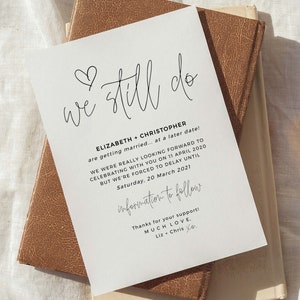 we still do
ELIZABETH + CHRISTOPHER
are getting married... at a later date!
WE WERE REALLY LOOKING FORWARD TO
CELEBRATING WITH YOU ON 11 APRIL 2020
BUT WE'RE FORCED TO DELAY UNTIL
Saturday, 20 March 2021
information to follow
Thanks for your support!
MUCH LOVE,
Liz + Chris xo